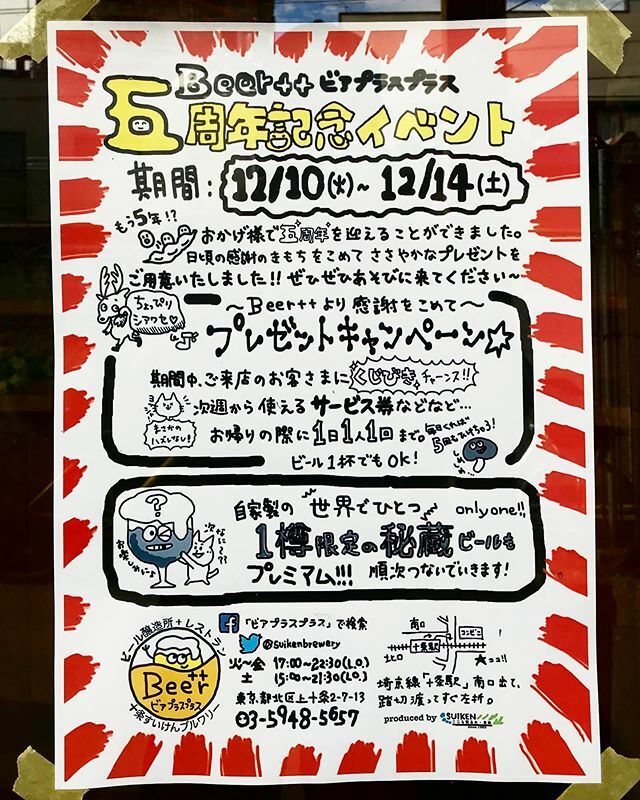 Beer++ ビアプラスプラス
五周年記念イベント
期間:12/10(火)~12/14(土)
もう5年!?
おかげ様で五周年を迎えることができました。
日頃の感謝のきもちをこめて ささやかなプレゼントを
ご用意いたしました!! ぜひぜひあそびに来てください~
ちょっぴり
シアワセ♡
~Beer++より感謝をこめて~
プレゼントキャンペーン☆
期間中、ご来店のお客さまに くじびきチャーンス!!
次週から使える サービス券などなど…
まさかの
ハズレなし!
お帰りの際に1日1人1回まで。
毎日くれば
5回もひけちゃう!
ビール1杯でもOK!
?
次なに~??
お楽しみに♪
自家製の 世界でひとつ only one!!
1樽限定の秘蔵ビールも
プレミアム!!! 順次つないでいきます!
ビール醸造所+レストラン
Beer++
ビアプラスプラス
十条すいけんブルワリー
「ビアプラスプラス」で検索
@suikenbrewery
火~金 17:00~22:30(L.O.)
土 15:00~21:30(L.O.)
東京都北区上十条2-7-13
03-5948-5657
南口
コンビニ
十条駅
北口
★ココ!!
埼京線「十条駅」南口出て、
踏切渡ってすぐ左折。
produced by SUIKEN